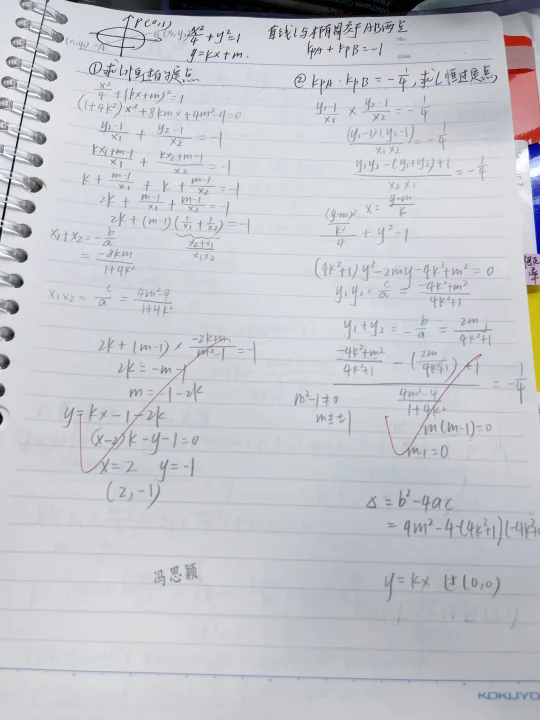 P(0,1)
x²/4 + y² = 1
y = kx + m.
直线l与椭圆交于AB两点
kPA + kPB = -1
No.
①求l恒过的定点
x²/4 + (kx+m)² = 1
(1+4k²)x² + 8kmx + 4m²-4 = 0
(y₁-1)/x₁ + (y₂-1)/x₂ = -1
(kx₁+m-1)/x₁ + (kx₂+m-1)/x₂ = -1
k + (m-1)/x₁ + k + (m-1)/x₂ = -1
2k + (m-1)/x₁ + (m-1)/x₂ = -1
2k + (m-1)(1/x₁ + 1/x₂) = -1
(x₂+x₁)/(x₁x₂)
x₁+x₂ = -b/a
= -8km/(1+4k²)
x₁x₂ = c/a = (4m²-4)/(1+4k²)
2k + (m-1) × -2km/(m²-1) = -1
2k = -m-1
m = -1-2k
y = kx-1-2k
(x-2)k-y-1=0
x=2 y=-1
(2,-1)
冯思颖
②kPA·kPB = -1/4, 求l恒过定点
(y₁-1)/x₁ × (y₂-1)/x₂ = -1/4
(y₁-1)(y₂-1)/(x₁x₂) = -1/4
(y₁y₂-(y₁+y₂)+1)/(x₂x₁) = -1/4
x = (y-m)/k
((y-m)²/k²)/4 + y² = 1
(4k²+1)y²-2my-4k²+m² = 0
y₁y₂ = c/a = (-4k²+m²)/(4k²+1)
y₁+y₂ = -b/a = 2m/(4k²+1)
((-4k²+m²)/(4k²+1) - (2m/(4k²+1)) + 1)/((4m²-4)/(1+4k²)) = -1/4
m²-1≠0
m≠±1
m(m-1)=0
m₁=0
Δ = b²-4ac
= 4m²-4(4k²+1)(-4k²+
y = kx 过(0,0)
KOKUYO